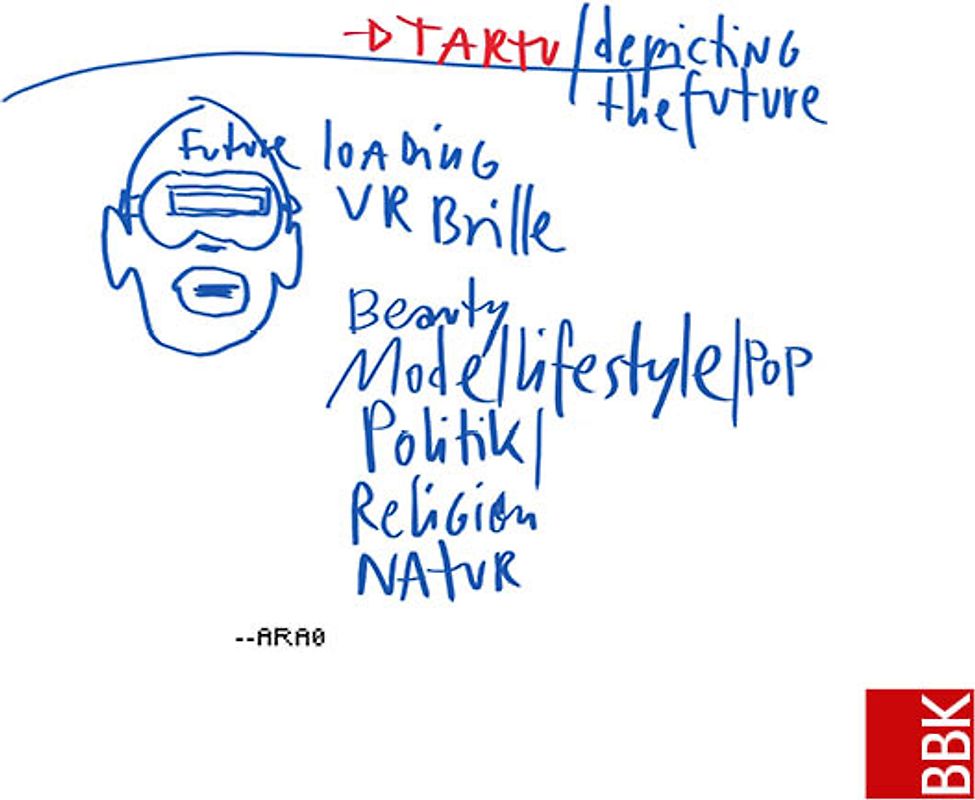 → TARTU / depicting
the future
Future loADinG
VR Brille
Beauty
Mode/lifestyle/POP
Politik/
Religion
NAtuR
--ARA0
BBK